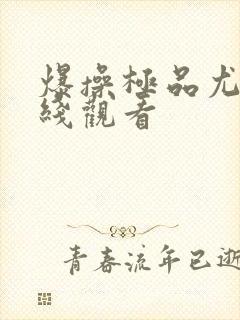 爆操極品尤
綫觀看
青春流年已逝